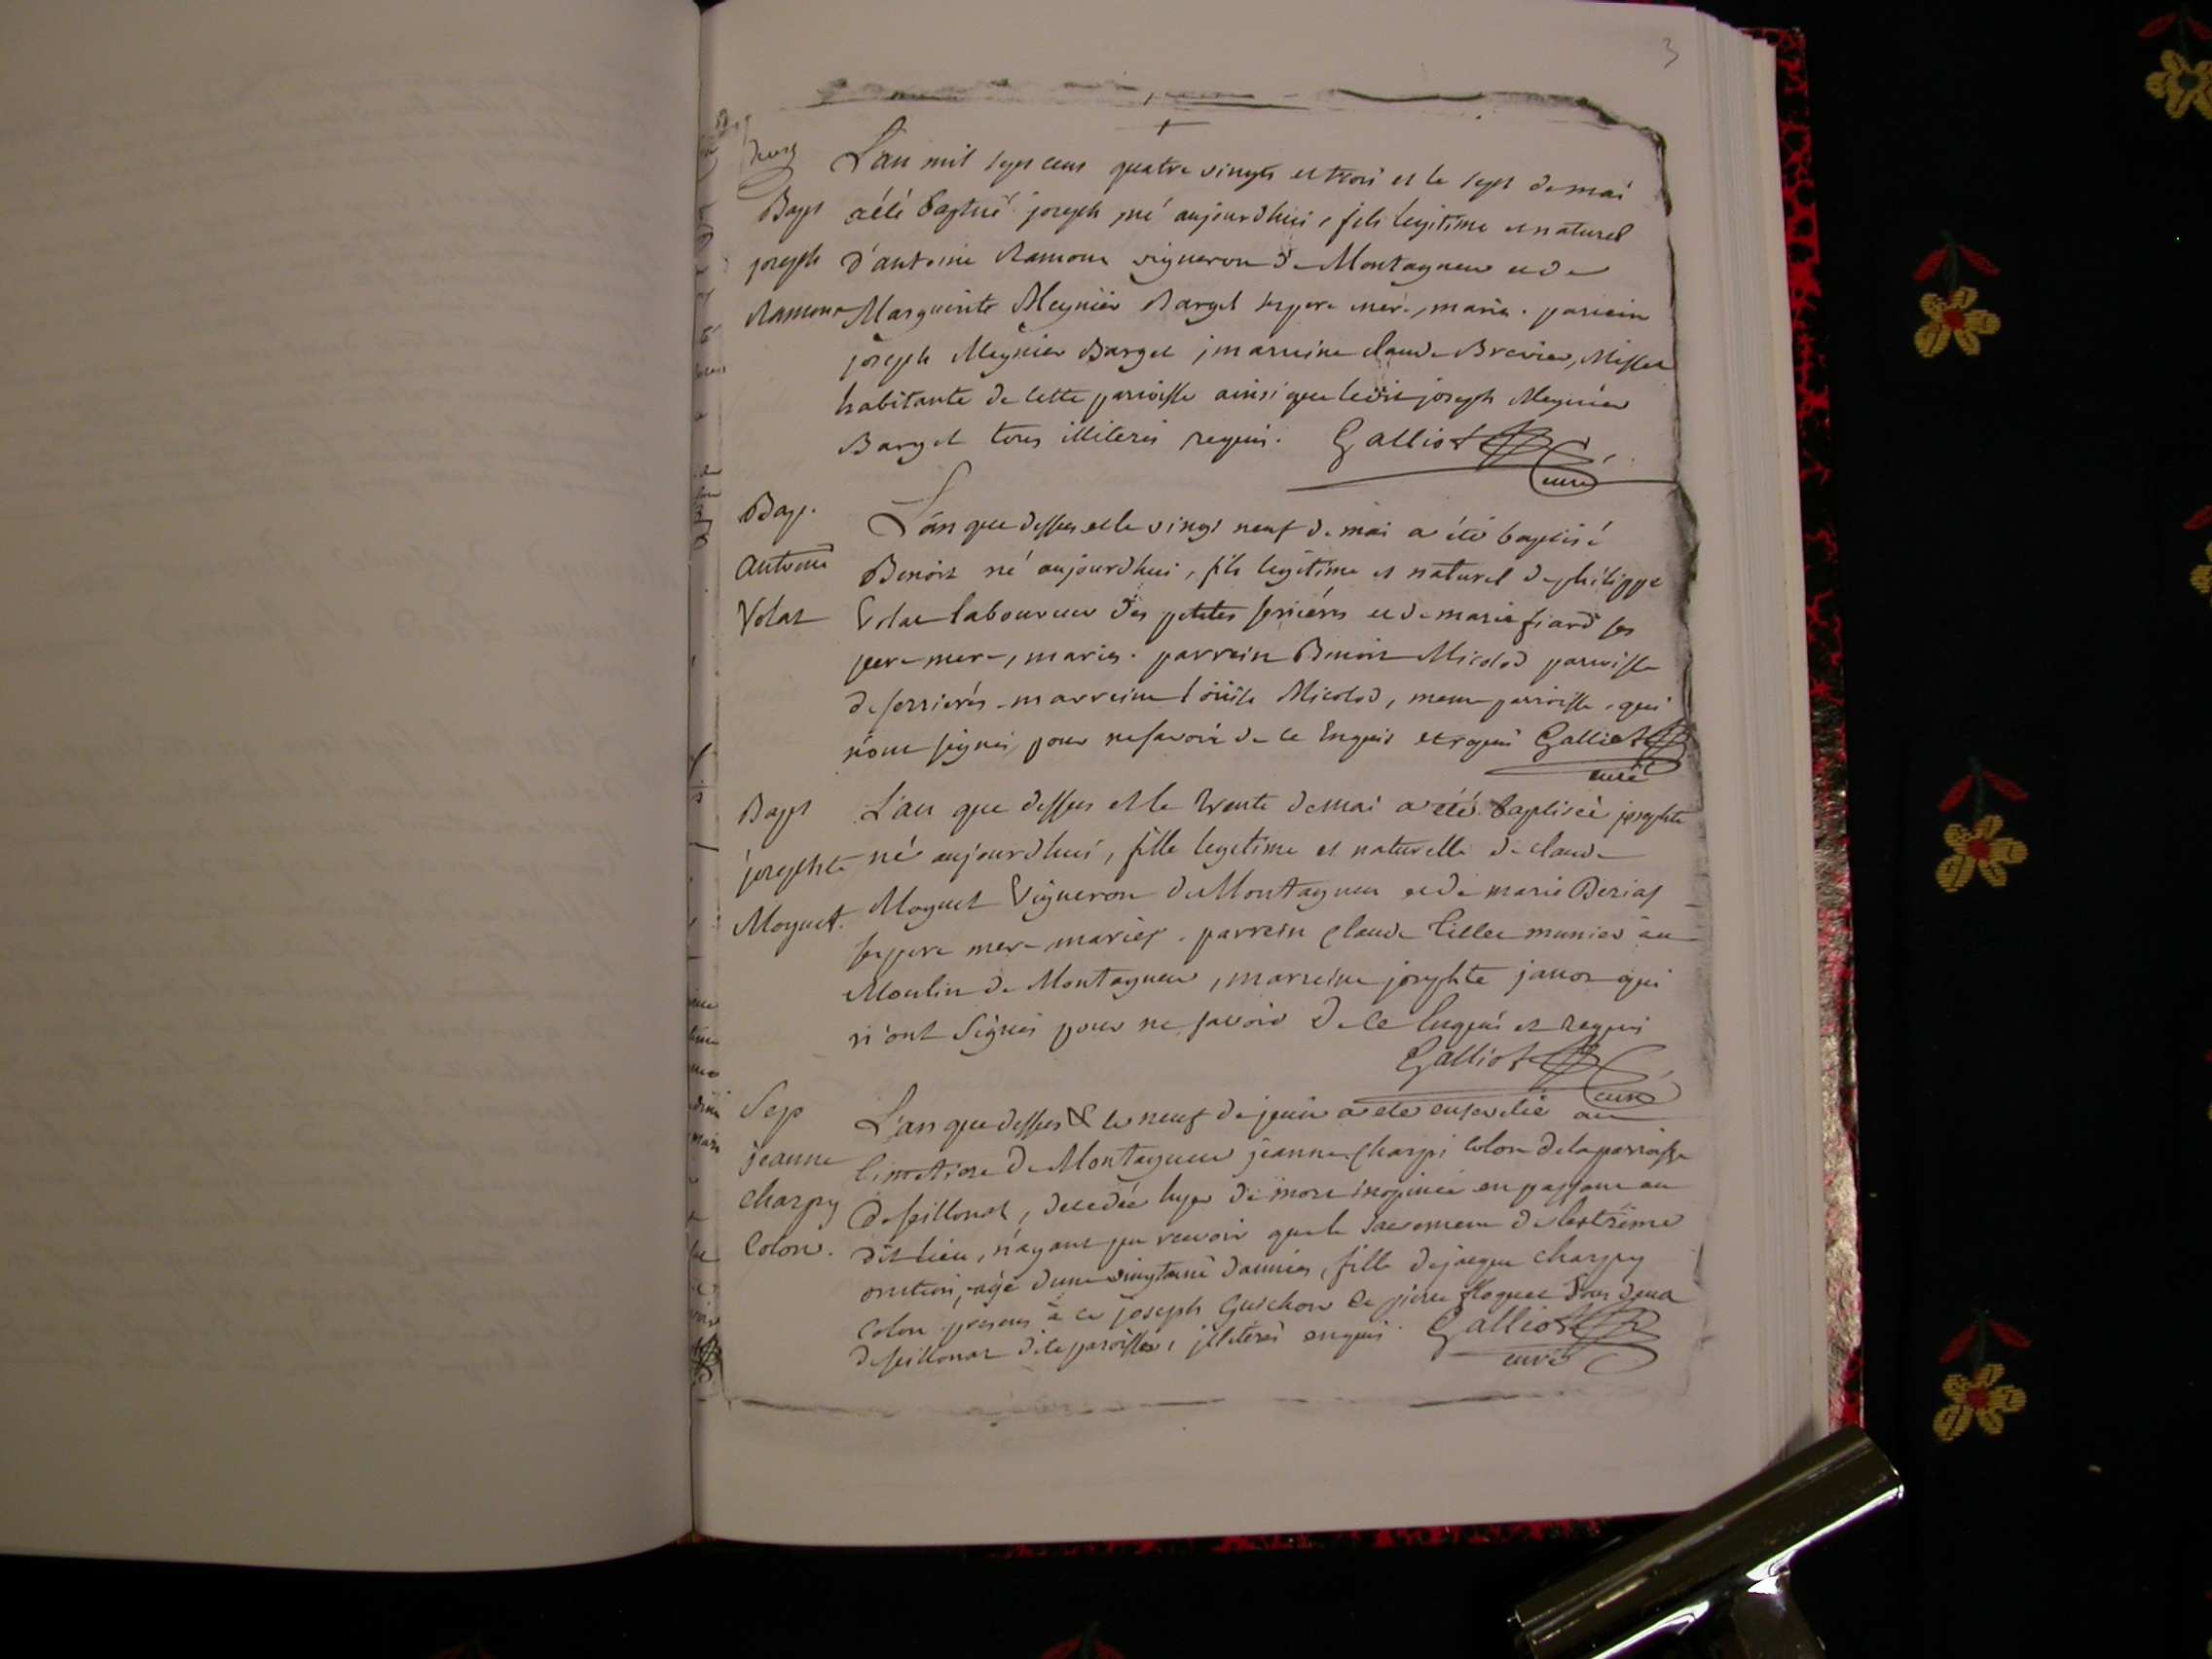 3
L'an mil sept cens quatre vingts et trois et le sept de mai
Bapt a été baptisé joseph né aujourdhui, fils legitime et naturel
joseph d'antoine Ramone vigneron de Montagneu et de
Ramone Marguerite Meynier Barget ses pere mere, mariés. parrein
joseph Meynier Barget, marreine claude Brevier, Millet
habitante de cette parroisse ainsi que ledit joseph Meynier
Barget tous illiterés requis. Galliot
curé
Bap. L'an que dessus et le vingt neuf de mai a été baptisé
antoine Benoit né aujourdhui, fils legitime et naturel de philippe
Volat Volat laboureur des petites serriéres et de marie fiard ses
pere mere, mariés. parrein Benoit Micolod parroisse
de serrierés. marreine loüise Micolod, meme parroisse, qui
n'ont signés pour ne savoir de ce Enquis et requis Galliot
curé
Bapt L'an que dessus et le trente de mai a été baptisée josephte
josephte né aujourdhui, fille legitime et naturelle de claude
Moquet. Moquet Vigneron de Montagneu et de marie
ses pere mere mariés. parrein claude tillet munier au
Moulin de Montagneu, marreine josephte janot qui
n'ont Signés pour ne savoir De ce Enquis et Requis
Galliot
curé
Sep L'an que dessus & le neuf de juin a été ensevelie au
jeanne Cimetiere De Montagneu jeanne charpi Colon de la parroisse
charpy De seillonat, decedée hyer de mort inopinée en passant au
Colon. dit lieu, n'ayant pu recevoir que le Sacrement de l'extrême
onction, agé d'une vingtaine d'années, fille de jaque charpy
Colon. presens à ce joseph Guichon et pierre Moquet tous deux
de seillonat dite paroisse, illiterés enquis. Galliot
curé